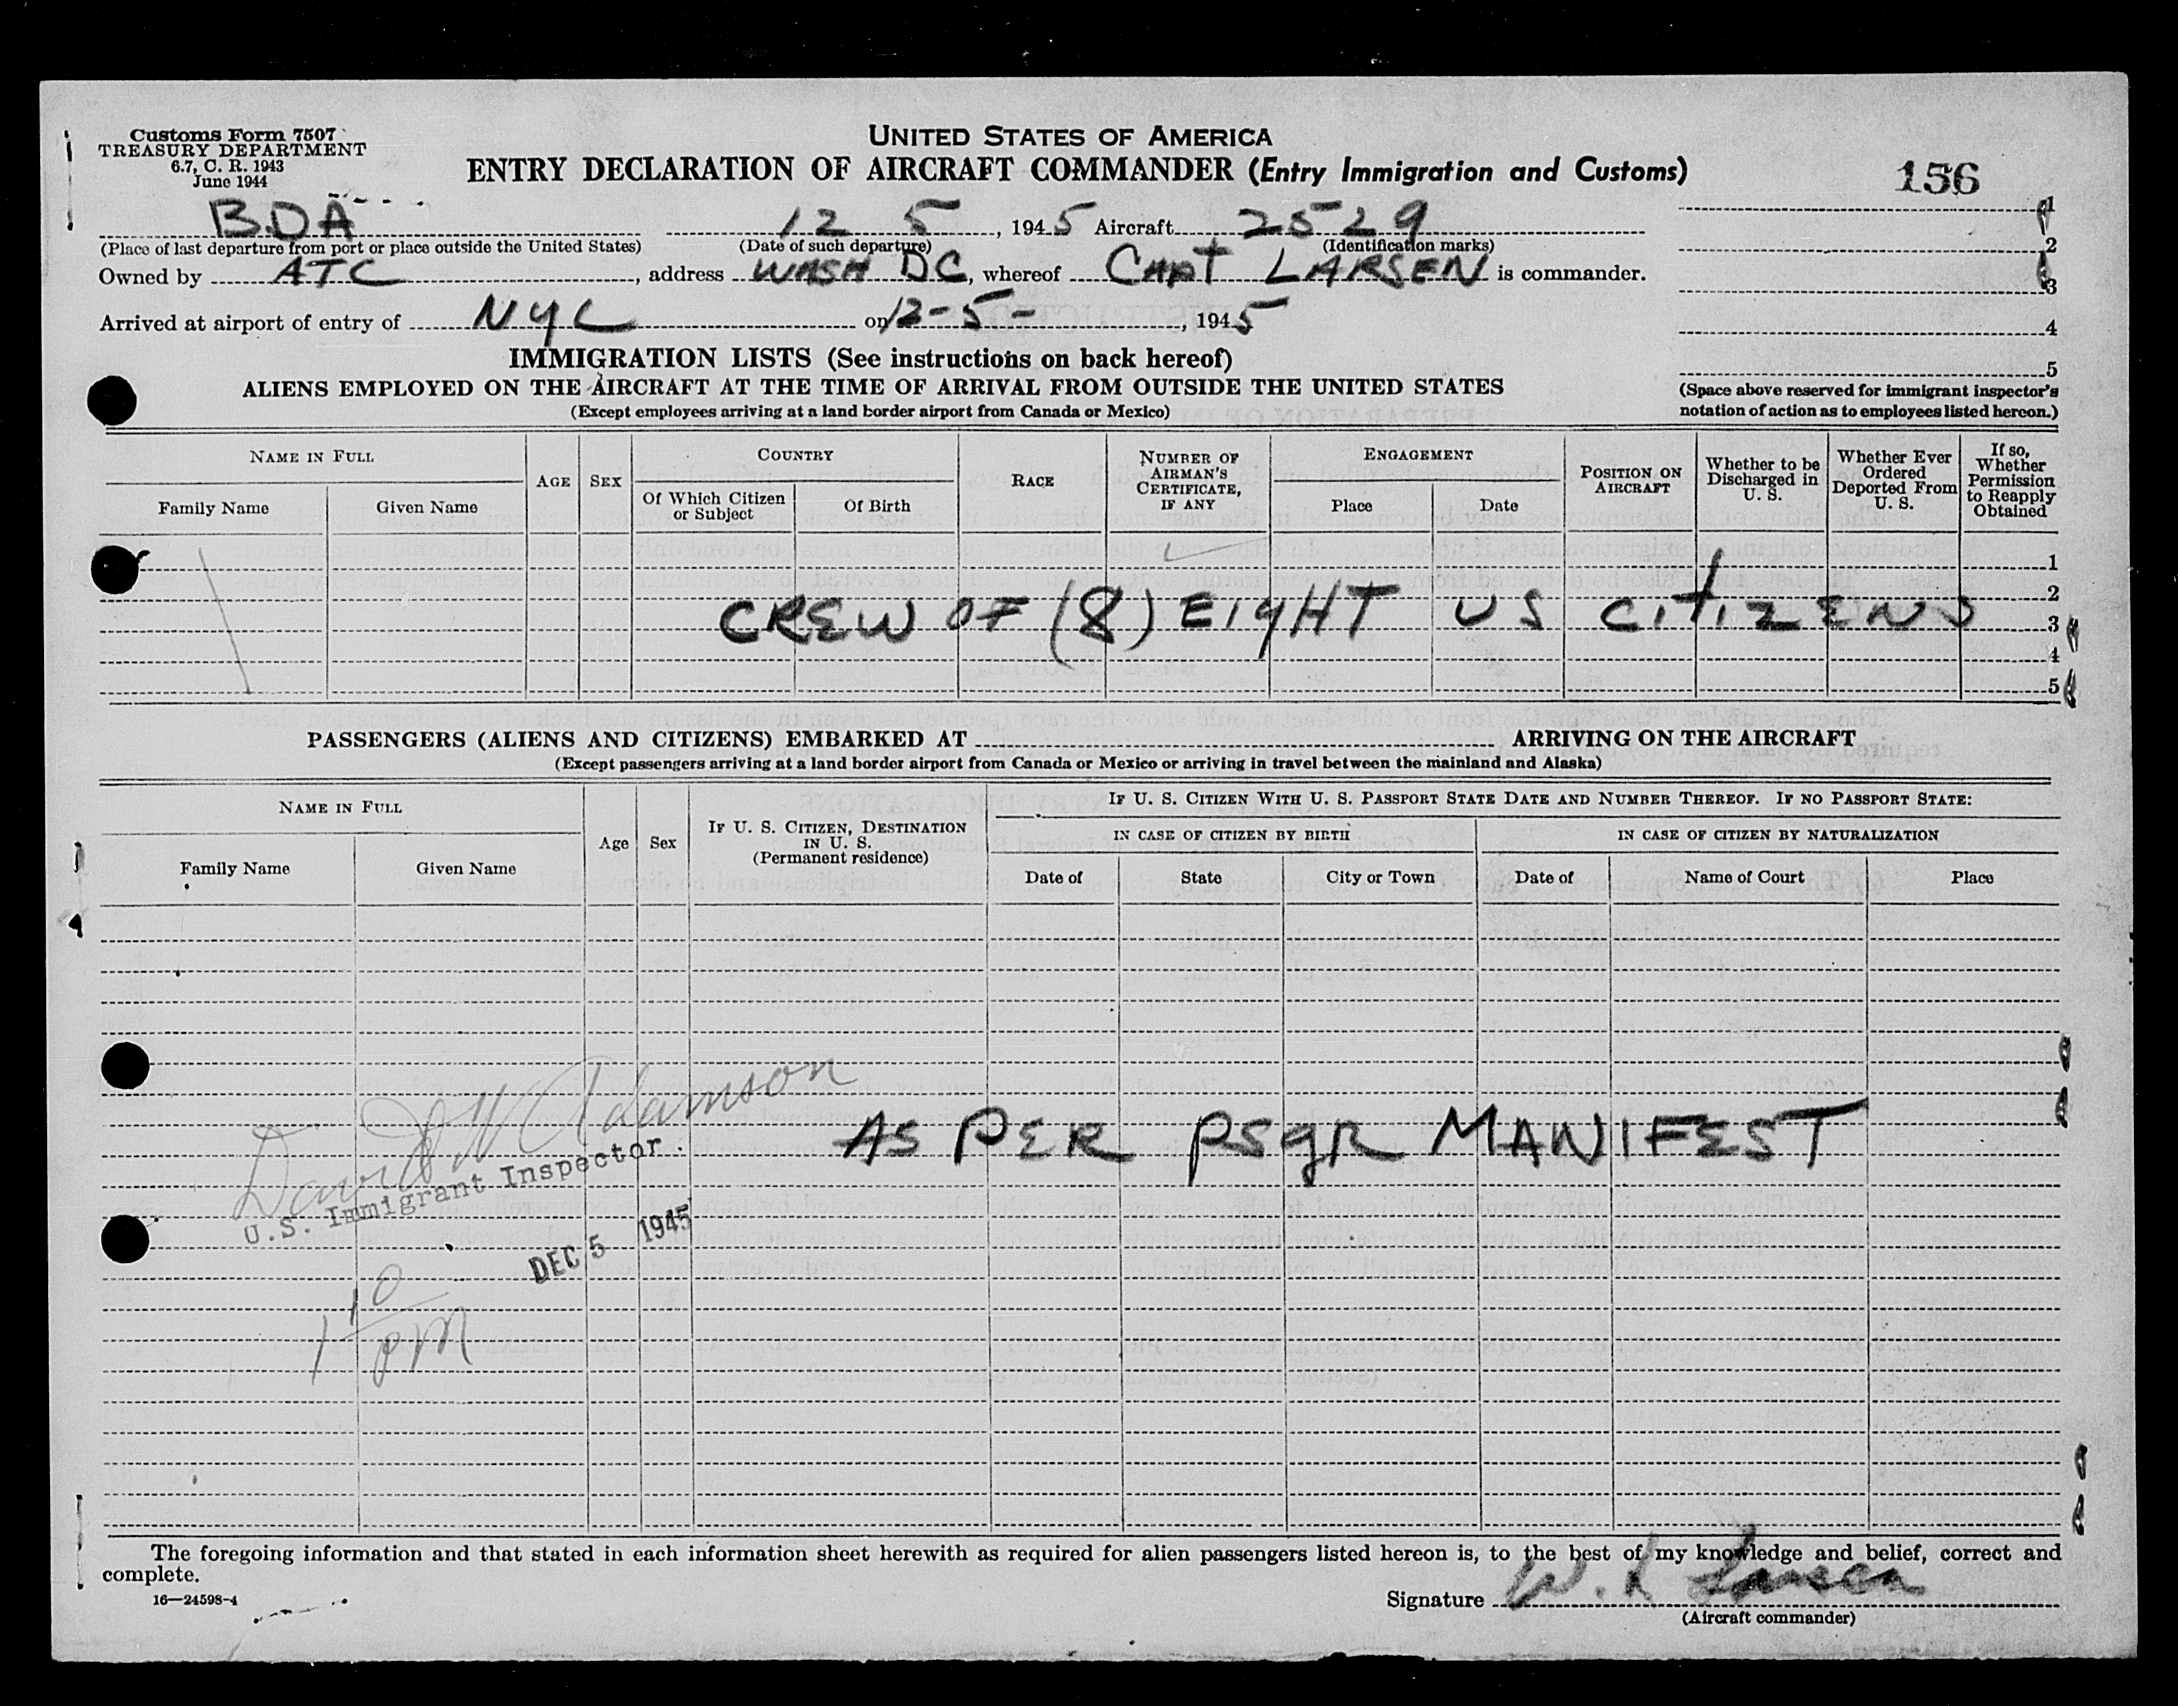 Customs Form 7507
TREASURY DEPARTMENT
6.7, C. R. 1943
June 1944
UNITED STATES OF AMERICA
ENTRY DECLARATION OF AIRCRAFT COMMANDER (Entry Immigration and Customs)
156
B.D.A 12 5, 1945 Aircraft 2529
(Place of last departure from port or place outside the United States) (Date of such departure) (Identification marks)
Owned by ATC, address WASH DC, whereof CAPT LARSEN is commander.
Arrived at airport of entry of NYC on 12-5-, 1945
1
2
3
4
5
(Space above reserved for immigrant inspector's
notation of action as to employees listed hereon.)
IMMIGRATION LISTS (See instructions on back hereof)
ALIENS EMPLOYED ON THE AIRCRAFT AT THE TIME OF ARRIVAL FROM OUTSIDE THE UNITED STATES
(Except employees arriving at a land border airport from Canada or Mexico)
NAME IN FULL
Family Name Given Name
AGE SEX
COUNTRY
Of Which Citizen
or Subject
Of Birth
RACE
NUMBER OF
AIRMAN'S
CERTIFICATE,
IF ANY
ENGAGEMENT
Place Date
POSITION ON
AIRCRAFT
Whether to be
Discharged in
U. S.
Whether Ever
Ordered
Deported From
U. S.
If so,
Whether
Permission
to Reapply
Obtained
1
2
CREW OF (8) EIGHT US CITIZENS
3
4
5
PASSENGERS (ALIENS AND CITIZENS) EMBARKED AT ARRIVING ON THE AIRCRAFT
(Except passengers arriving at a land border airport from Canada or Mexico or arriving in travel between the mainland and Alaska)
NAME IN FULL
Family Name Given Name
Age Sex
IF U. S. CITIZEN, DESTINATION
IN U. S.
(Permanent residence)
IF U. S. CITIZEN WITH U. S. PASSPORT STATE DATE AND NUMBER THEREOF. IF NO PASSPORT STATE:
IN CASE OF CITIZEN BY BIRTH IN CASE OF CITIZEN BY NATURALIZATION
Date of State City or Town Date of Name of Court Place
AS PER PSGR MANIFEST
David W Adamson
U.S. Immigrant Inspector.
DEC 5 1945
1 10 pm
The foregoing information and that stated in each information sheet herewith as required for alien passengers listed hereon is, to the best of my knowledge and belief, correct and
complete.
16—24598-4
Signature W. L Larsen
(Aircraft commander)